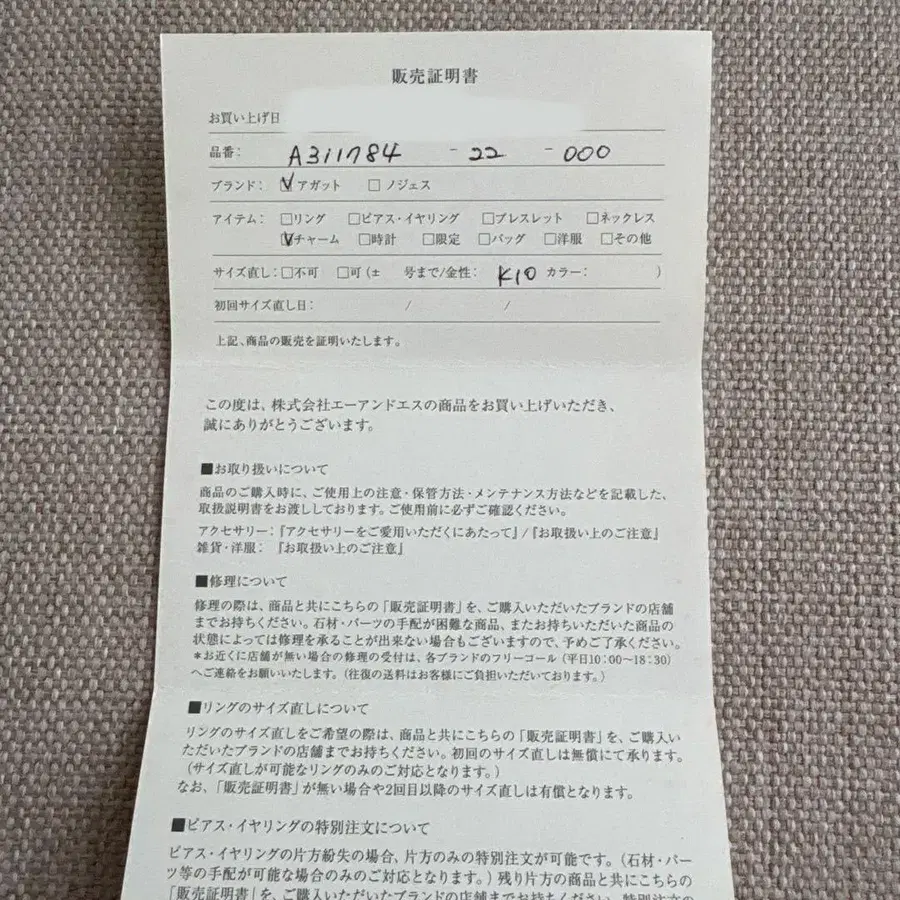 販売証明書
お買い上げ日
品番： A311784 - 22 - 000
ブランド： ☑アガット □ノジェス
アイテム： □リング □ピアス・イヤリング □ブレスレット □ネックレス
☑チャーム □時計 □限定 □バッグ □洋服 □その他
サイズ直し： □不可 □可（± 号まで/金性： K10 カラー： ）
初回サイズ直し日： / /
上記、商品の販売を証明いたします。
この度は、株式会社エーアンドエスの商品をお買い上げいただき、
誠にありがとうございます。
■お取り扱いについて
商品のご購入時に、ご使用上の注意・保管方法・メンテナンス方法などを記載した、
取扱説明書をお渡ししております。ご使用前に必ずご確認ください。
アクセサリー：『アクセサリーをご愛用いただくにあたって』/『お取扱い上のご注意』
雑貨・洋服： 『お取扱い上のご注意』
■修理について
修理の際は、商品と共にこちらの「販売証明書」を、ご購入いただいたブランドの店舗
までお持ちください。石材・パーツの手配が困難な商品、またお持ちいただいた商品の
状態によっては修理を承ることが出来ない場合もございますので、予めご了承ください。
＊お近くに店舗が無い場合の修理の受付は、各ブランドのフリーコール（平日10：00〜18：30）
へご連絡をお願いいたします。（往復の送料はお客様にご負担いただいております。）
■リングのサイズ直しについて
リングのサイズ直しをご希望の際は、商品と共にこちらの「販売証明書」を、ご購入い
ただいたブランドの店舗までお持ちください。初回のサイズ直しは無償にて承ります。
（サイズ直しが可能なリングのみのご対応となります。）
なお、「販売証明書」が無い場合や2回目以降のサイズ直しは有償となります。
■ピアス・イヤリングの特別注文について
ピアス・イヤリングの片方紛失の場合、片方のみの特別注文が可能です。（石材・パー
ツ等の手配が可能な場合のみのご対応となります。）残り片方の商品と共にこちらの
「販売証明書」を、ご購入いただいたブランドの店舗までお持ちください。特別注文の